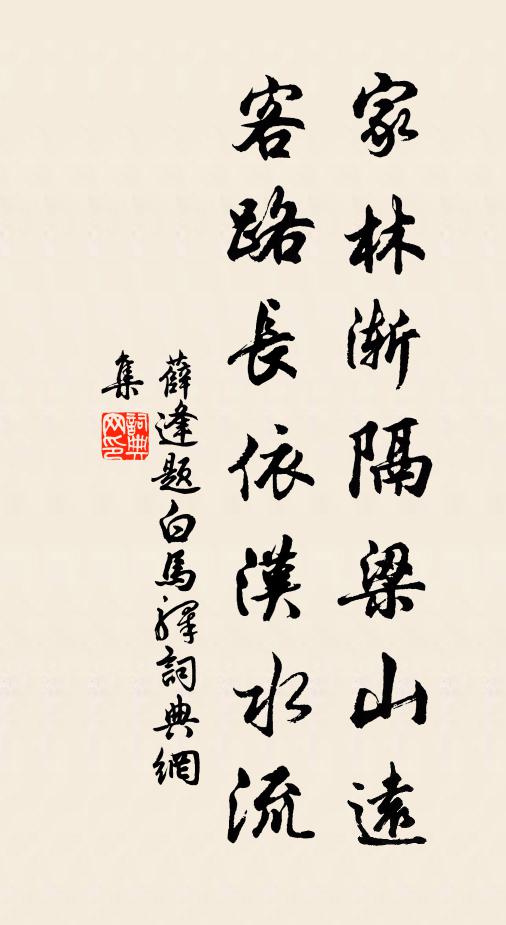 家林漸隔梁山遠
客路長依漢水流
薛逢題白馬驛詞典網
集
詞典
网印